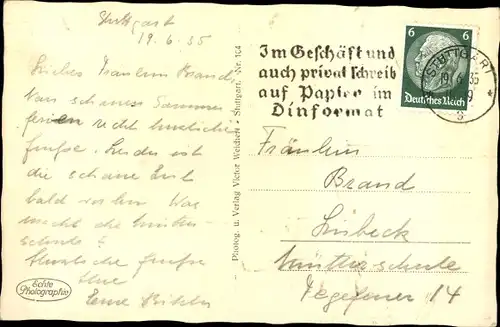 Stuttgart
19.6.35
Liebes Fräulein Brand,
Von schönen Sommer
ferien recht herzliche
Grüße. Leider ist
die schöne Zeit
bald vorbei. Was
macht die
schule?
Herzliche Grüße
Ihre
Echte
Photographie
Photog. u. Verlag Victor Weichert - Stuttgart. Nr. 104
Im Geschäft und
auch privat schreib
auf Papier im
Dinformat
6 6
Deutsches Reich
STUTTGART
19.6.35
9
Fräulein
Brand
Lübeck
14